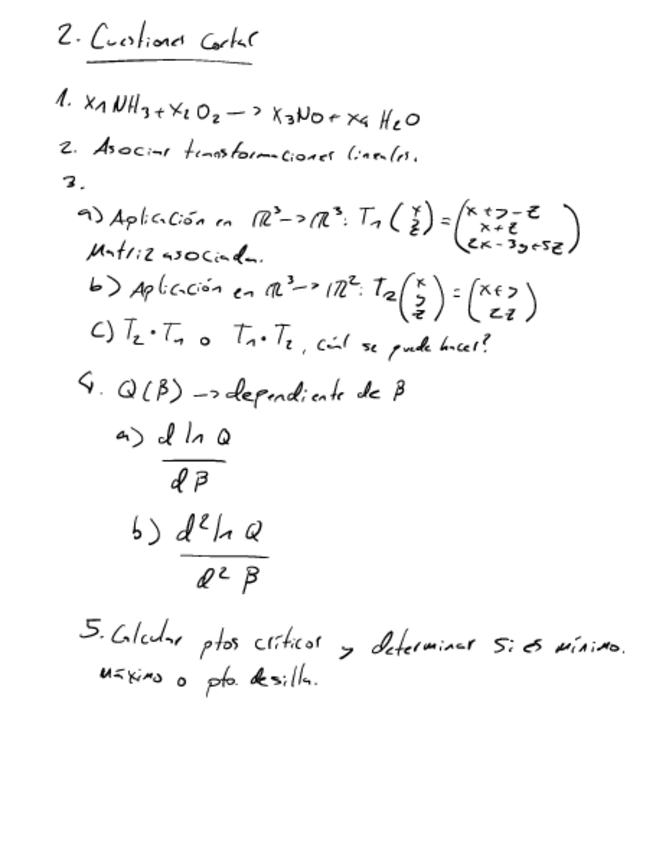 2. Cuestiones Cortas
1. x₁NH₃ + x₂O₂ —> x₃NO + x₄ H₂O
2. Asociar transformaciones lineales.
3.
a) Aplicación en ℝ³—>ℝ³: T₁ (x y z) = (x+y-z x+z 2x-3y+5z)
Matriz asociada.
b) Aplicación en ℝ³—>ℝ²: T₂ (x y z) = (x+y 2z)
c) T₂·T₁ o T₁·T₂, cuál se puede hacer?
4. Q(β) —> dependiente de β
a) d ln Q
dβ
b) d² ln Q
d² β
5. Calcular ptos críticos y determinar si es mínimo.
máximo o pto. de silla.